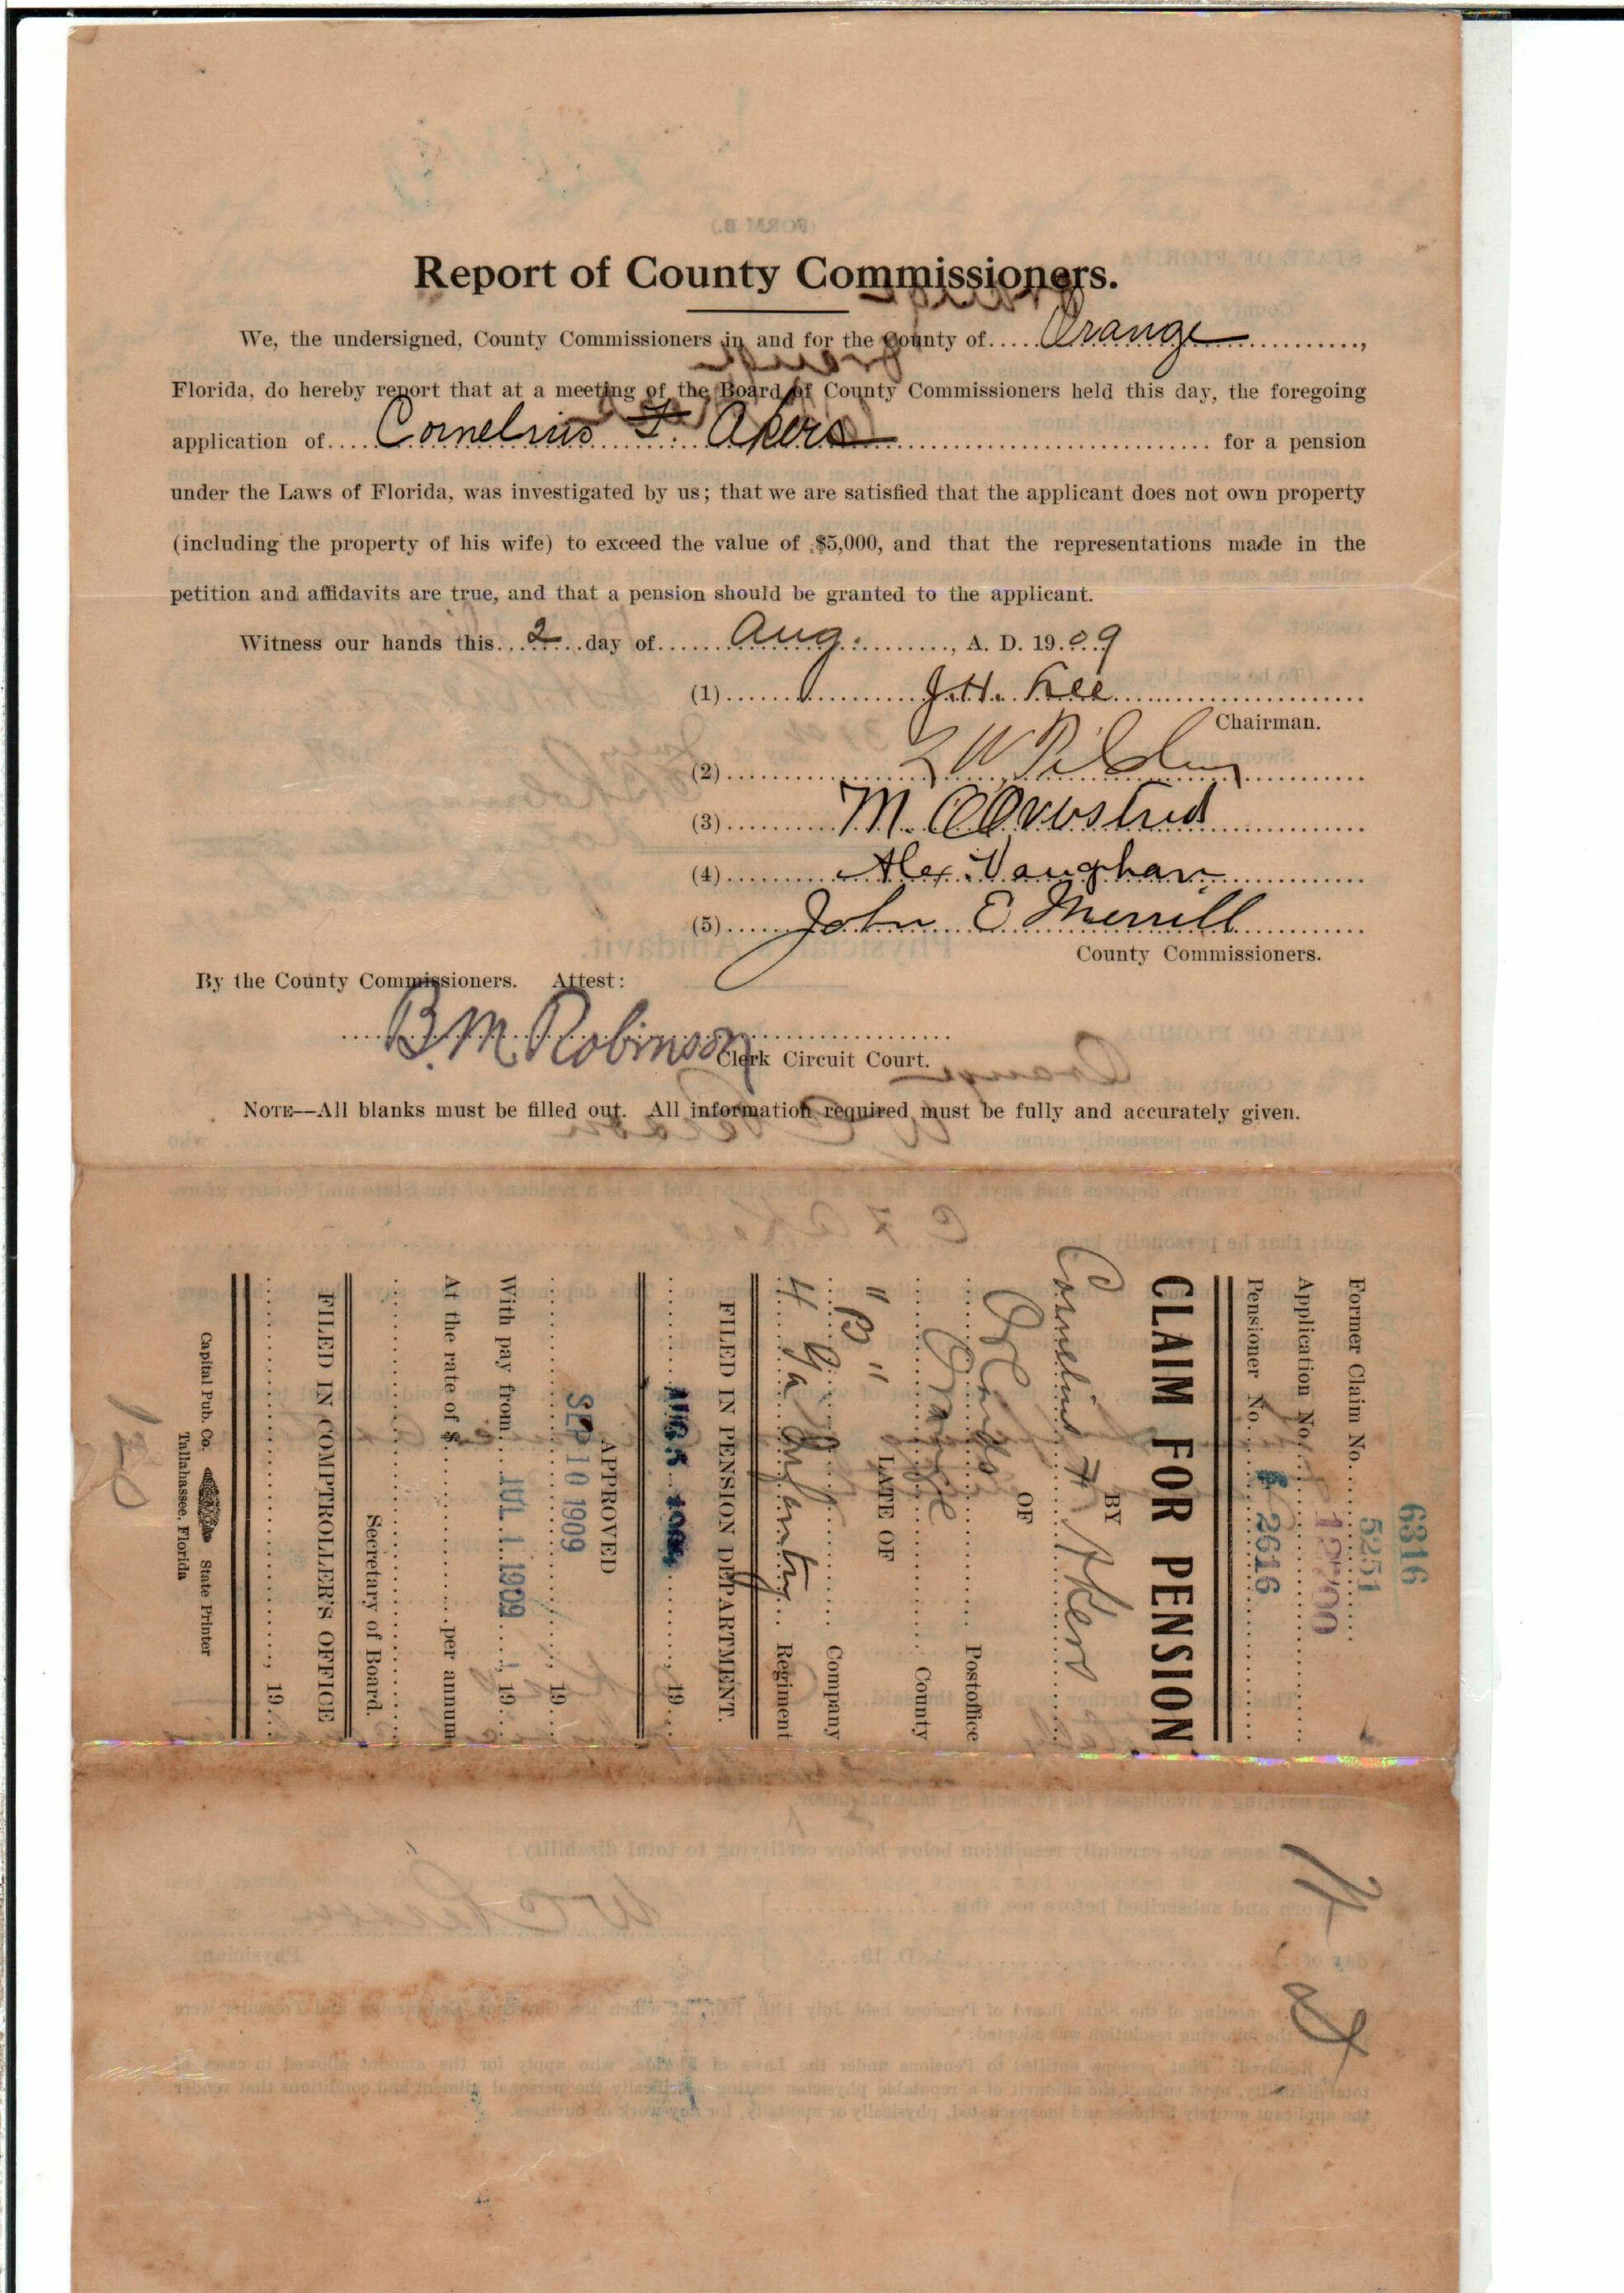 Report of County Commissioners.
We, the undersigned, County Commissioners in and for the County of..... Orange ..............,
Florida, do hereby report that at a meeting of the Board of County Commissioners held this day, the foregoing
application of.... Cornelius F. Akers ........................ for a pension
under the Laws of Florida, was investigated by us; that we are satisfied that the applicant does not own property
(including the property of his wife) to exceed the value of $5,000, and that the representations made in the
petition and affidavits are true, and that a pension should be granted to the applicant.
Witness our hands this... 2 ...day of...... Aug. ........, A. D. 19 09
(1)........ J. H. Lee ........
Chairman.
(2)........
(3)........ M. O. Overstreet ........
(4)........ Alex. Vaughan ........
(5)........ John E Merrill ........
County Commissioners.
By the County Commissioners. Attest:
B. M. Robinson
Clerk Circuit Court.
NOTE—All blanks must be filled out. All information required must be fully and accurately given.
6316
Former Claim No. 5251
Application No.
Pensioner No. 2616
CLAIM FOR PENSION
BY
Cornelius F. Akers
OF
Orlando Postoffice
Orange County
LATE OF
"B" Company
4 Ga Infantry Regiment
FILED IN PENSION DEPARTMENT.
AUG , 19
APPROVED
SEP 10 1909 , 19
With pay from JUL 1 1909 1, 19
At the rate of $ per annum
Secretary of Board.
FILED IN COMPTROLLER'S OFFICE
, 19
Capital Pub. Co. State Printer
Tallahassee, Florida